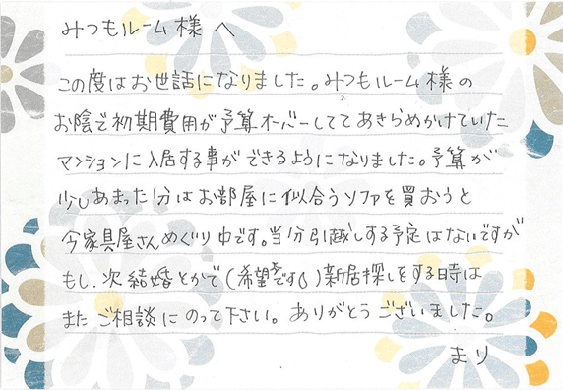 みつもルーム様へ
この度はお世話になりました。みつもルーム様の
お陰で初期費用が予算オーバーしててあきらめかけていた
マンションに入居する事ができるようになりました。予算が
少しあまった分はお部屋に似合うソファを買おうと
今家具屋さんめぐり中です。当分引越しする予定はないですが
もし、次結婚とかで(希望ですし)新居探しをする時は
またご相談にのって下さい。ありがとうございました。
まり